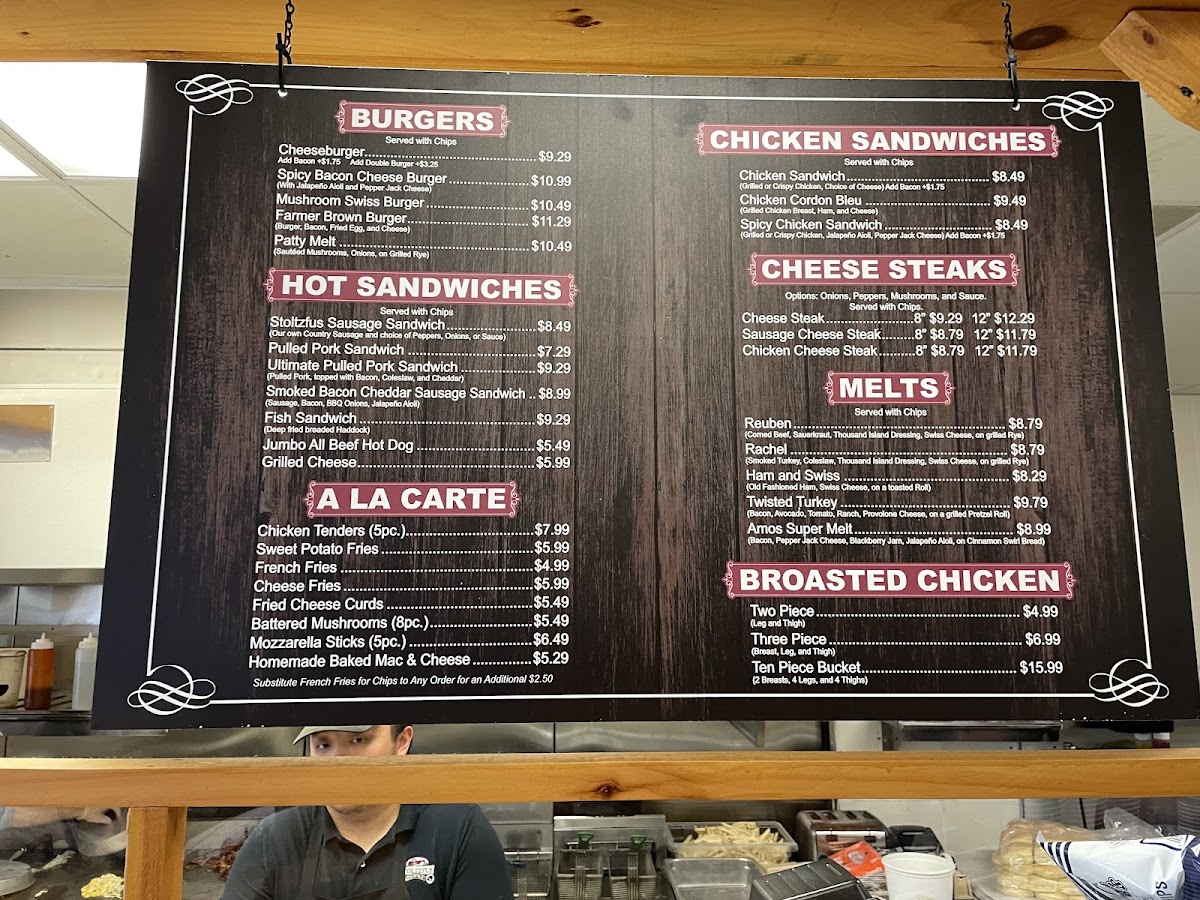 BURGERS
Served with Chips
Cheeseburger $9.29
Add Bacon +$1.75 Add Double Burger +$3.25
Spicy Bacon Cheese Burger $10.99
(With Jalapeño Aioli and Pepper Jack Cheese)
Mushroom Swiss Burger $10.49
Farmer Brown Burger $11.29
(Burger, Bacon, Fried Egg, and Cheese)
Patty Melt $10.49
(Sautéed Mushrooms, Onions, on Grilled Rye)
HOT SANDWICHES
Served with Chips
Stoltzfus Sausage Sandwich $8.49
(Our own Country Sausage and choice of Peppers, Onions, or Sauce)
Pulled Pork Sandwich $7.29
Ultimate Pulled Pork Sandwich $9.29
(Pulled Pork, topped with Bacon, Coleslaw, and Cheddar)
Smoked Bacon Cheddar Sausage Sandwich $8.99
(Sausage, Bacon, BBQ Onions, Jalapeño Aioli)
Fish Sandwich $9.29
(Deep fried breaded Haddock)
Jumbo All Beef Hot Dog $5.49
Grilled Cheese $5.99
A LA CARTE
Chicken Tenders (5pc.) $7.99
Sweet Potato Fries $5.99
French Fries $4.99
Cheese Fries $5.99
Fried Cheese Curds $5.49
Battered Mushrooms (8pc.) $5.49
Mozzarella Sticks (5pc.) $6.49
Homemade Baked Mac & Cheese $5.29
Substitute French Fries for Chips to Any Order for an Additional $2.50
CHICKEN SANDWICHES
Served with Chips
Chicken Sandwich $8.49
(Grilled or Crispy Chicken, Choice of Cheese) Add Bacon +$1.75
Chicken Cordon Bleu $9.49
(Grilled Chicken Breast, Ham, and Cheese)
Spicy Chicken Sandwich $8.49
(Grilled or Crispy Chicken, Jalapeño Aioli, Pepper Jack Cheese) Add Bacon +$1.75
CHEESE STEAKS
Options: Onions, Peppers, Mushrooms, and Sauce.
Served with Chips.
Cheese Steak 8" $9.29 12" $12.29
Sausage Cheese Steak 8" $8.79 12" $11.79
Chicken Cheese Steak 8" $8.79 12" $11.79
MELTS
Served with Chips
Reuben $8.79
(Corned Beef, Sauerkraut, Thousand Island Dressing, Swiss Cheese, on grilled Rye)
Rachel $8.79
(Smoked Turkey, Coleslaw, Thousand Island Dressing, Swiss Cheese, on grilled Rye)
Ham and Swiss $8.29
(Old Fashioned Ham, Swiss Cheese, on a toasted Roll)
Twisted Turkey $9.79
(Bacon, Avocado, Tomato, Ranch, Provolone Cheese, on a grilled Pretzel Roll)
Amos Super Melt $8.99
(Bacon, Pepper Jack Cheese, Blackberry Jam, Jalapeño Aioli, on Cinnamon Swirl Bread)
BROASTED CHICKEN
Two Piece $4.99
(Leg and Thigh)
Three Piece $6.99
(Breast, Leg, and Thigh)
Ten Piece Bucket $15.99
(2 Breasts, 4 Legs, and 4 Thighs)